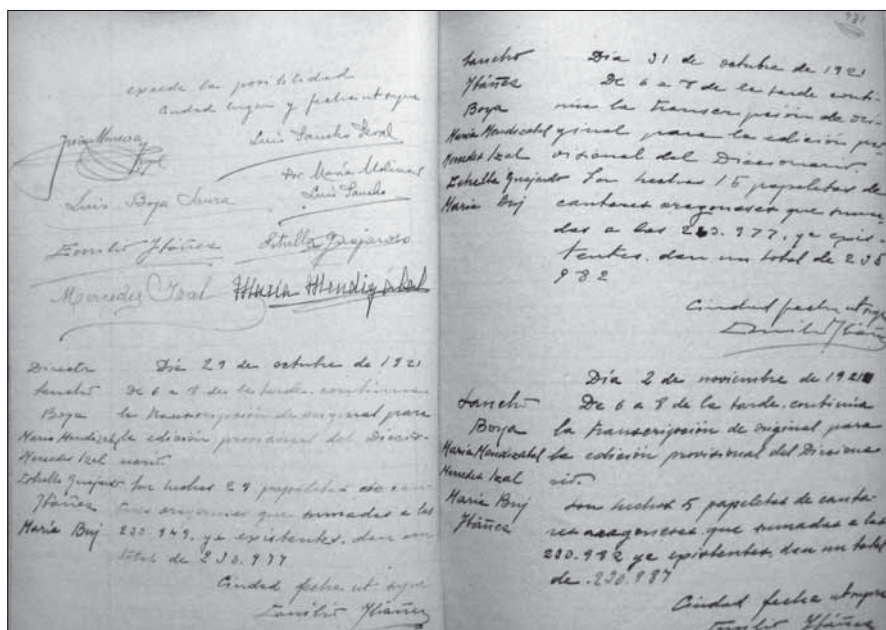 excede la posibilidad
Ciudad lugar y fecha ut supra
Juan Moneva
Puyol
Luis Sancho Seral
Por María Moliner
Luis Sancho
Luis Boya Saura
Emilio Ybáñez
Estrella Quejarazo
Mercedes Izal
María Mendizábal
Director
Sancho
Boya
María Mendizabal
Mercedes Izal
Estrella Quejarazo
Ybáñez
María Buj
Día 29 de octubre de 1921
De 6 a 8 de la tarde, continua
la transcripción de original para
la edición provisional del Diccio-
nario.
Son hechas 29 papeletas de can-
tares aragoneses que sumadas a las
230.949, ya existentes, dan un
total de 230.977
Ciudad fecha ut supra
Emilio Ybáñez
981
Sancho
Ybáñez
Boya
María Mendizabal
Mercedes Izal
Estrella Quejarazo
María Buj
Día 31 de octubre de 1921
De 6 a 8 de la tarde conti-
núa la transcripción de ori-
ginal para la edición pro-
visional del Diccionario.
Son hechas 15 papeletas de
cantares aragoneses que suma-
das a las 230.977, ya exis-
tentes, dan un total de 230
982
Ciudad fecha ut supra
Emilio Ybáñez
Sancho
Boya
María Mendizabal
Mercedes Izal
María Buj
Ybáñez
Día 2 de noviembre de 1921
De 6 a 8 de la tarde, continúa
la transcripción de original para
la edición provisional del Dicciona
rio.
Son hechas 5 papeletas de canta-
res aragoneses, que sumadas a las
230.982 ya existentes, dan un total
de 230.987
Ciudad fecha ut supra
Emilio Ybáñez